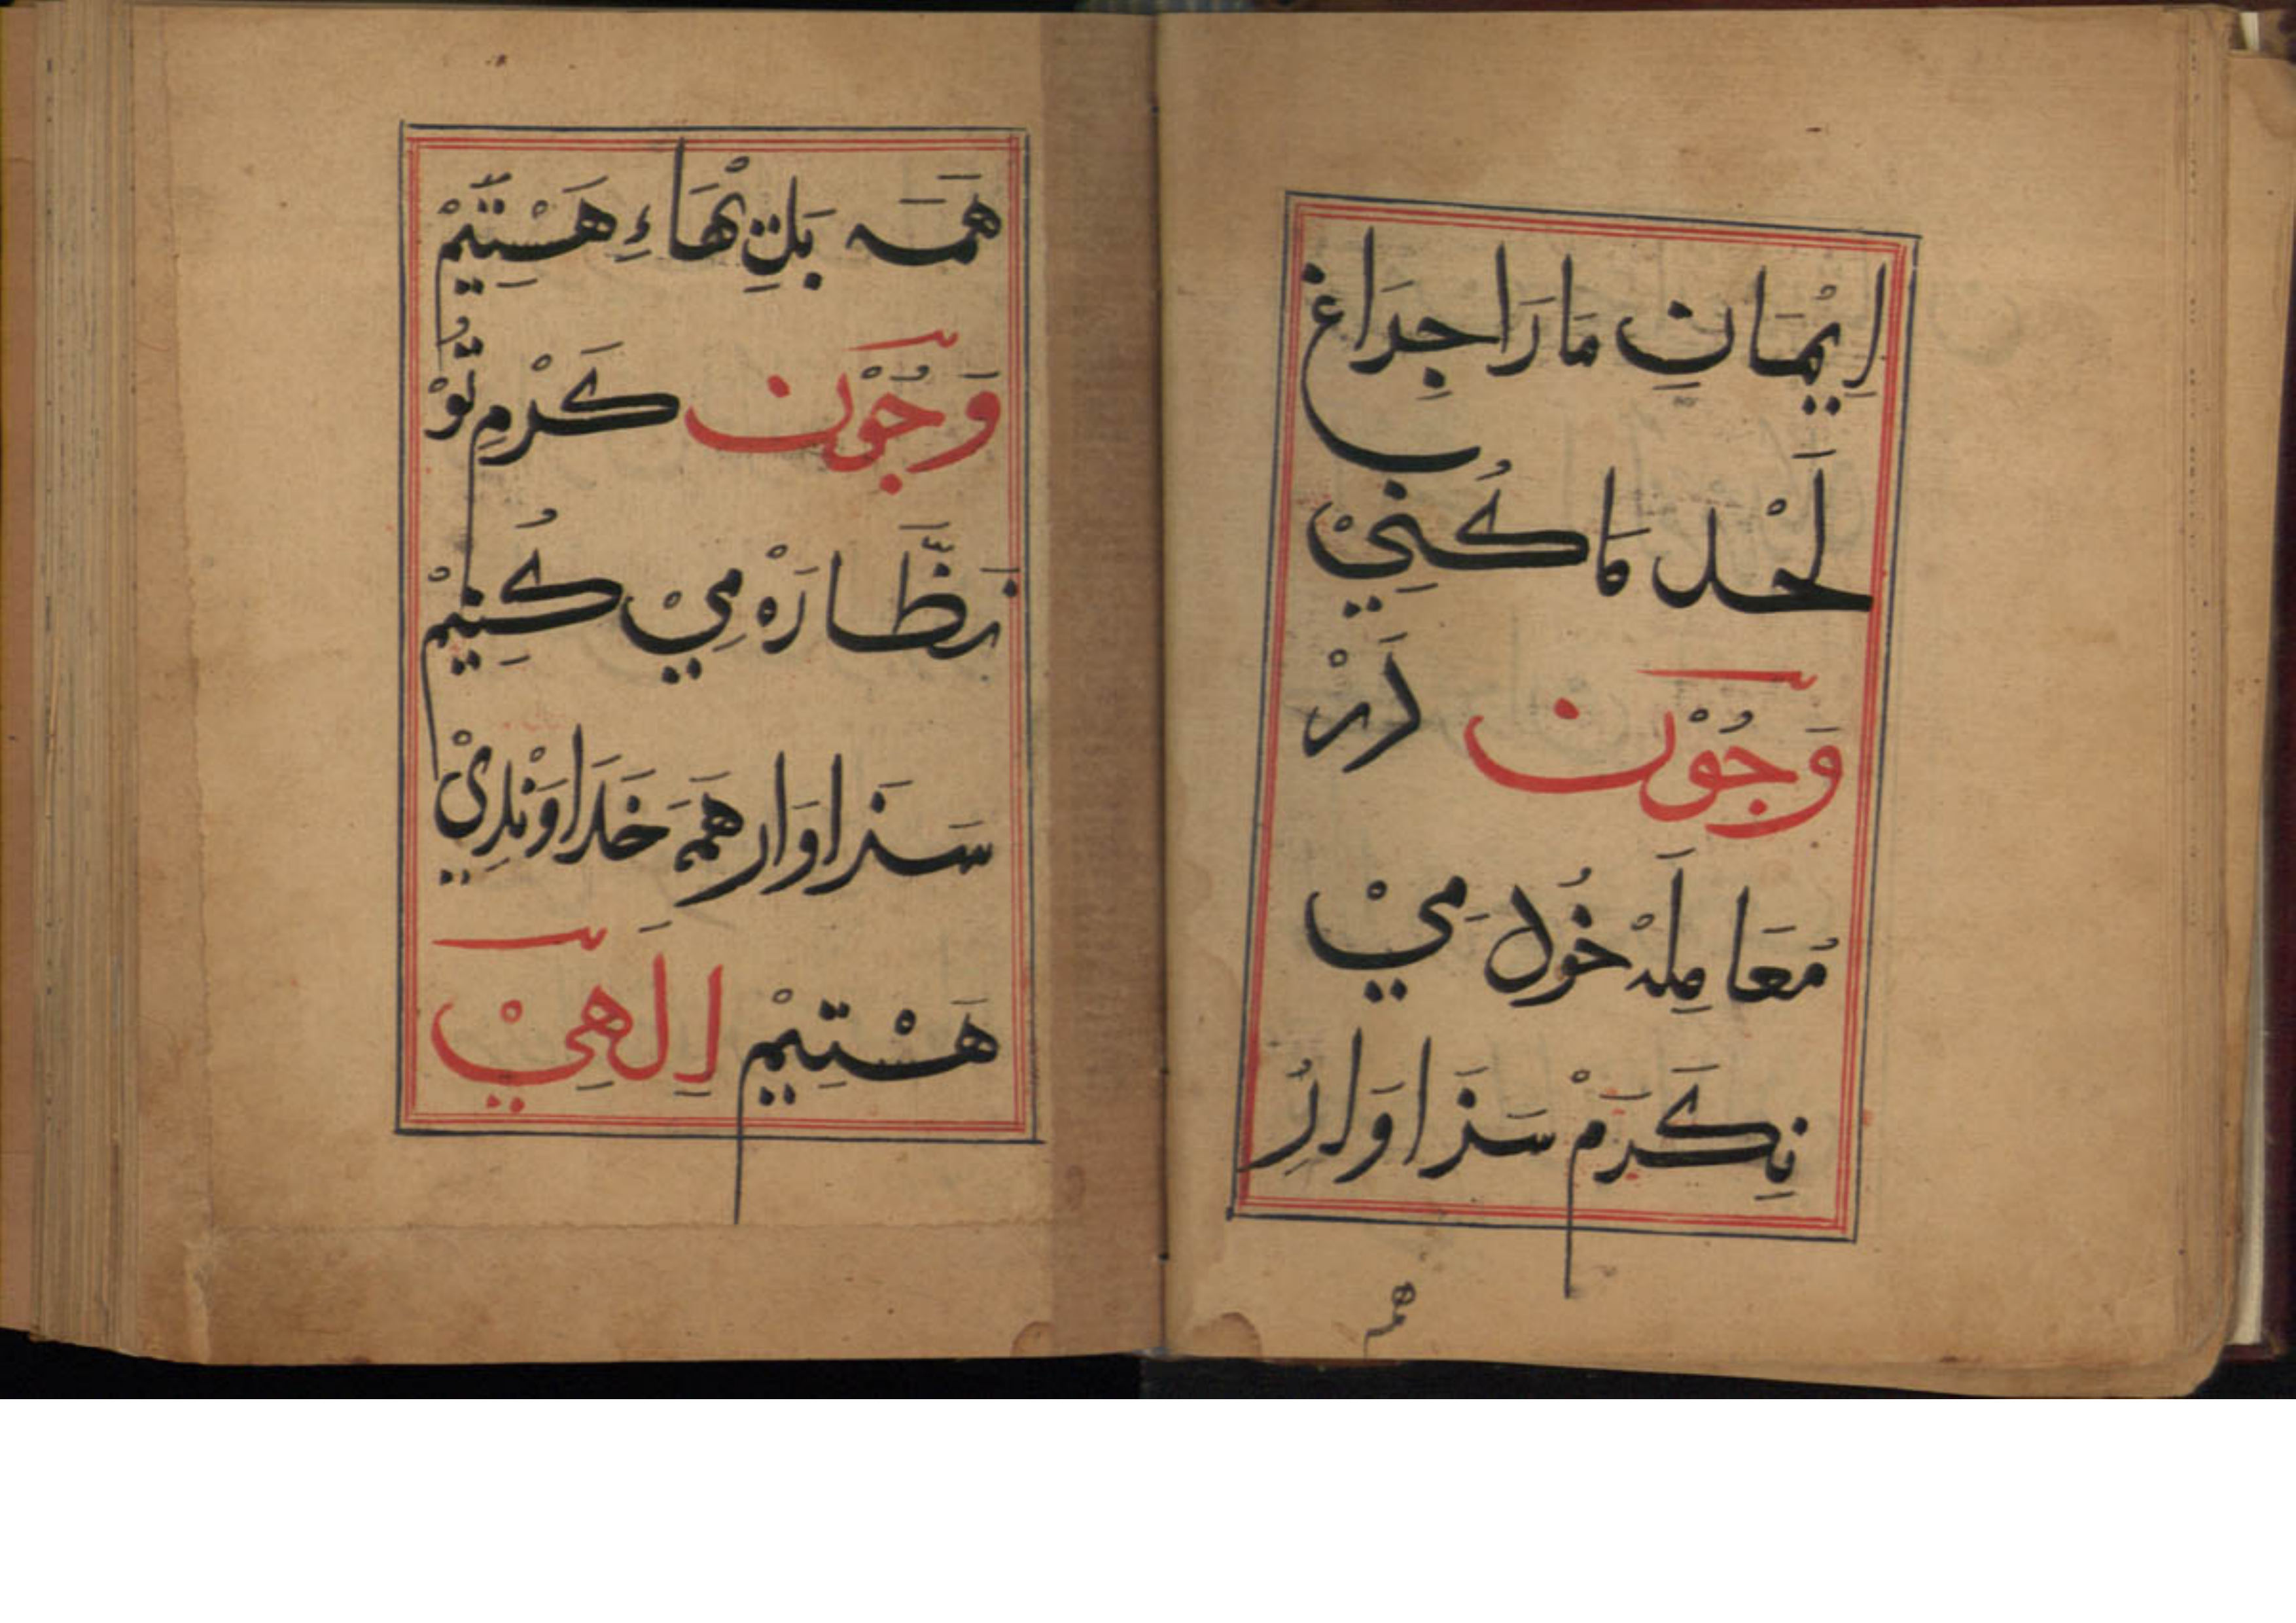 اِيْمَانِ مَا رَا چِرَاغِ
لَحْد مَا كُنِيْ
وَ چُوْن دَرْ
مُعَامِلَهْ خُود مَيْ
نِكَرَمْ سَزَاوَارِ
هم
هَمَه بَلِيْهَاءِ هَسْتِيَمْ
وَ چُوْن كَرْمِ تُوْ
نَظَّارَهْ مِيْ كُنِيْمْ
سَزَاوَار هَمَه خَدَاوَنْدِيْ
هَسْتِيْمْ اِلَهِيْ